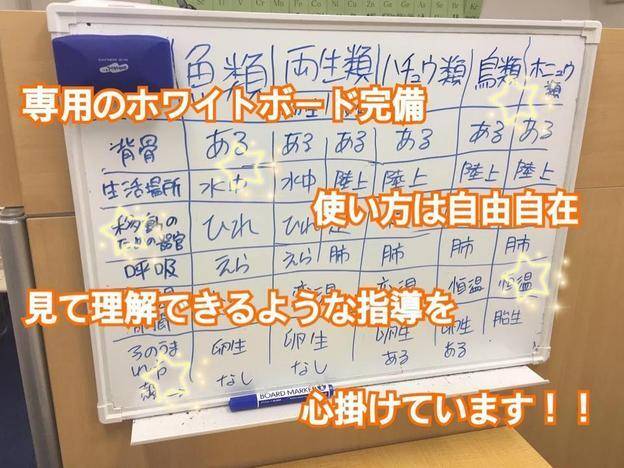 魚類 両生類 ハチュウ類 鳥類 ホニュウ類
専用のホワイトボード完備
背骨 ある ある ある ある ある ある
生活場所 水中 水中 陸上 陸上 陸上 陸上
使い方は自由自在
移動のための器官 ひれ ひれ
呼吸 えら えら 肺 肺 肺 肺
恒温 恒温
見て理解できるような指導を
卵生 卵生 卵生 卵生 胎生
なし なし ある ある
BOARD MARKER
心掛けています！！